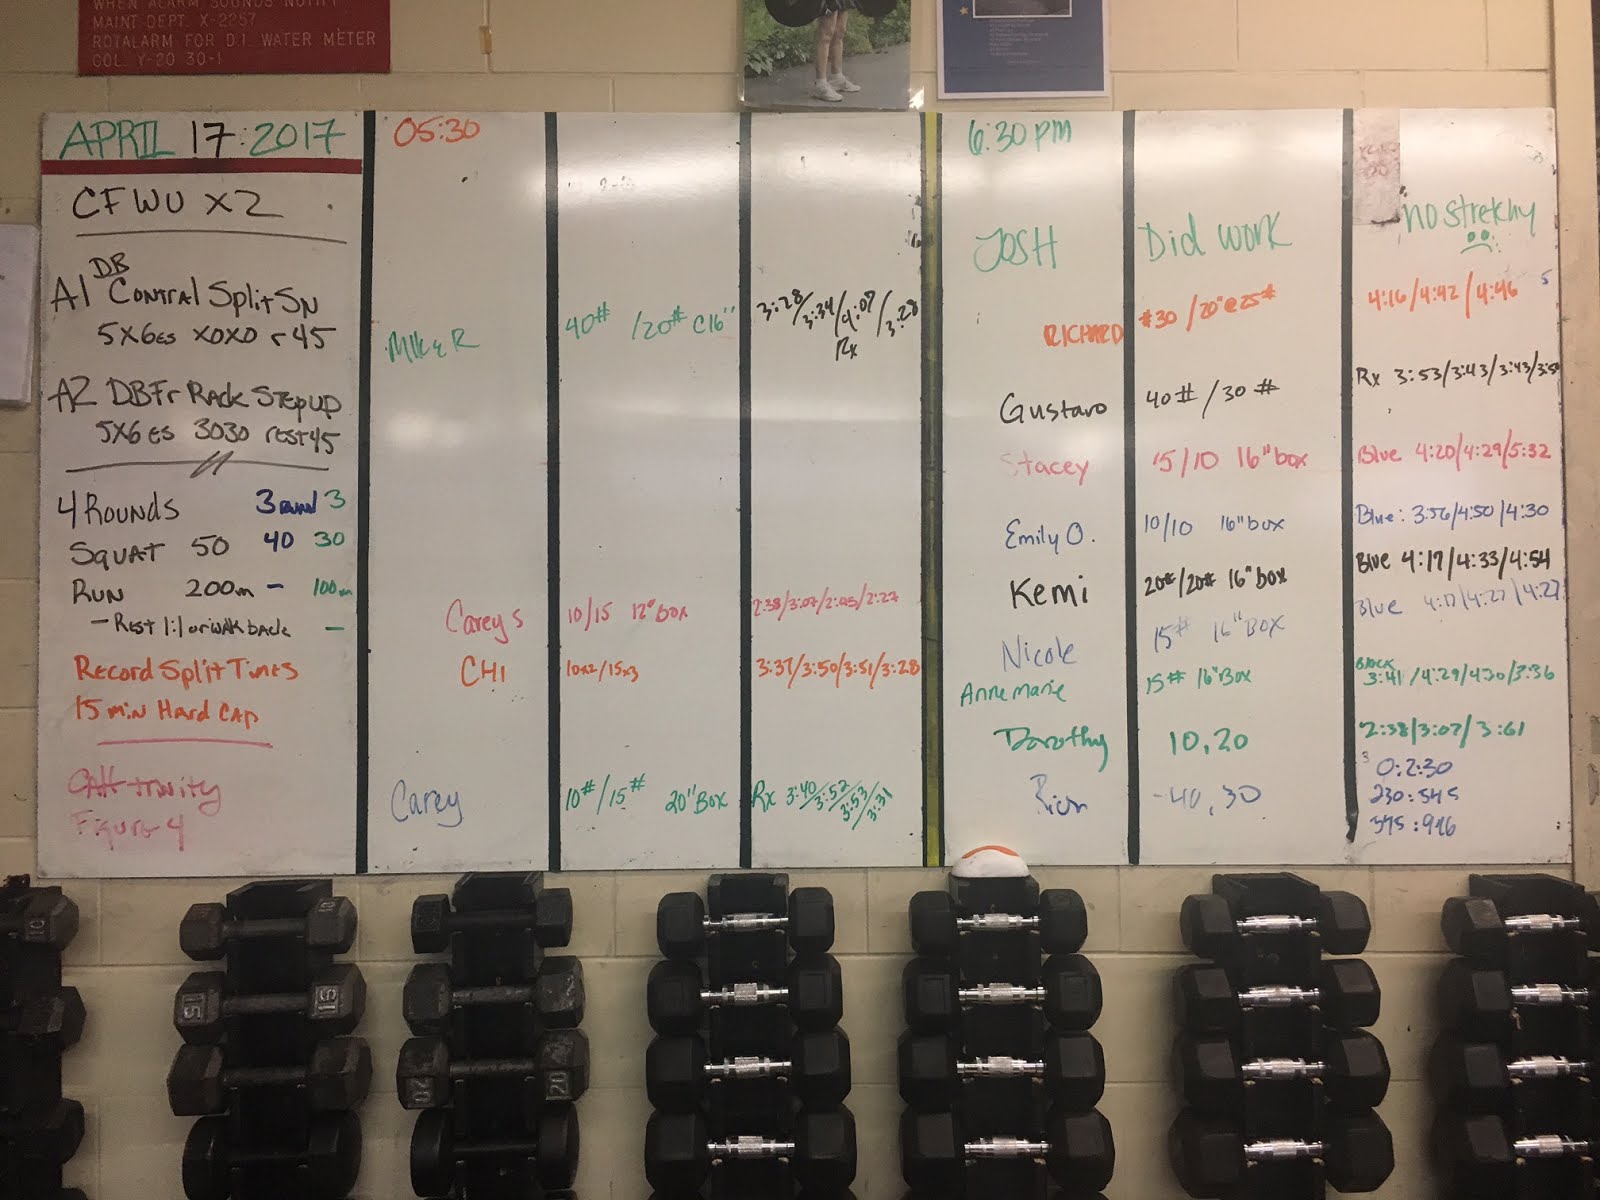 WHEN ALARM SOUNDS NOTIFY
MAINT DEPT. X-2257
ROTALARM FOR D.I. WATER METER
COL. Y-20 30-1
APRIL 17:2017
CFWU X2
A1 DB Contral Split SN
5X6ES X0X0 r 45
A2 DB Fr Rack Step up
5X6 ES 3030 rest 45
4 Rounds 3 Round 3
Squat 50 40 30
Run 200m - 100m
- Rest 1:1 or walk back -
Record Split Times
15 min Hard Cap
Calf trinity
Figure 4
05:30
Mike R 40# /20# C16" 3:28/3:34/4:07/3:28
Rx
Carey S 10/15 12" Box 2:38/3:07/2:45/2:27
CHI 10x2/15x3 3:37/3:50/3:51/3:28
Carey 10#/15# 20" Box Rx 3:40/3:52/3:53/3:31
6:30 PM
JOSH Did work no stretchy
RICHARD #30 /20"@25# 4:16/4:42/4:46
Gustavo 40#/30# Rx 3:53/3:43/3:43/3:50
Stacey 15/10 16" box Blue 4:20/4:29/5:32
Emily O. 10/10 16" box Blue: 3:56/4:50/4:30
Kemi 20#/20# 16" box Blue 4:17/4:33/4:54
Nicole 15# 16" Box Blue 4:17/4:27/4:27
Anne marie 15# 16" Box Black 3:41/4:29/4:20/3:36
Dorothy 10,20 2:38/3:07/3:61
-40,30 0:2:30
230:545
545:946
10 10
15 15
20 20
10